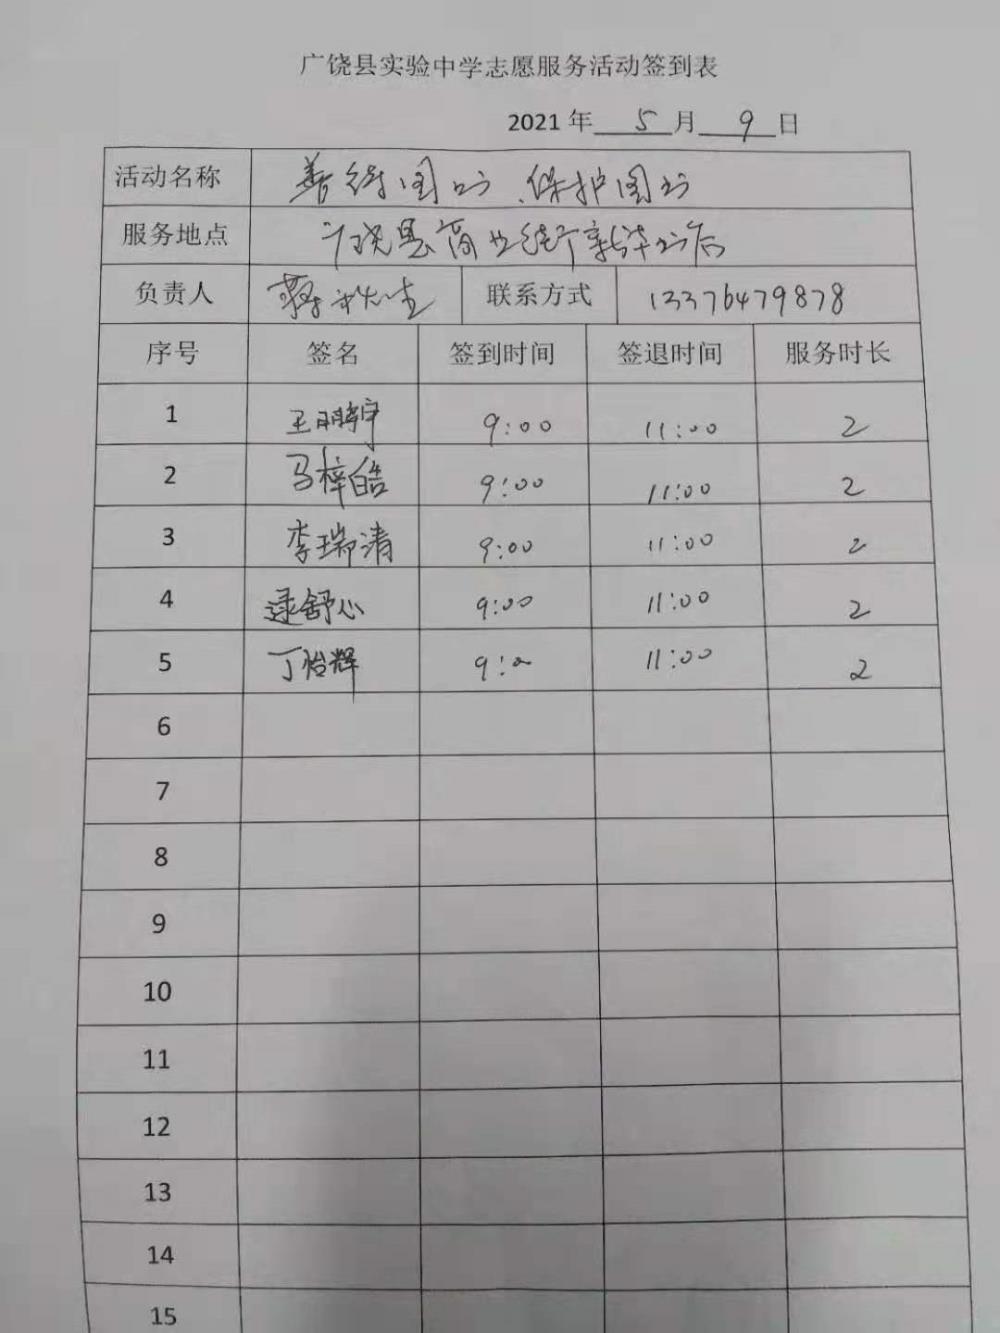 广饶县实验中学志愿服务活动签到表
2021年 5 月 9 日
活动名称 善待图书、保护图书
服务地点 广饶县商业街新华书店
负责人 联系方式 13376479878
序号 签名 签到时间 签退时间 服务时长
1 王鹏宇 9:00 11:00 2
2 马梓皓 9:00 11:00 2
3 李瑞清 9:00 11:00 2
4 逯舒心 9:00 11:00 2
5 丁怡辉 9:00 11:00 2
6
7
8
9
10
11
12
13
14
15